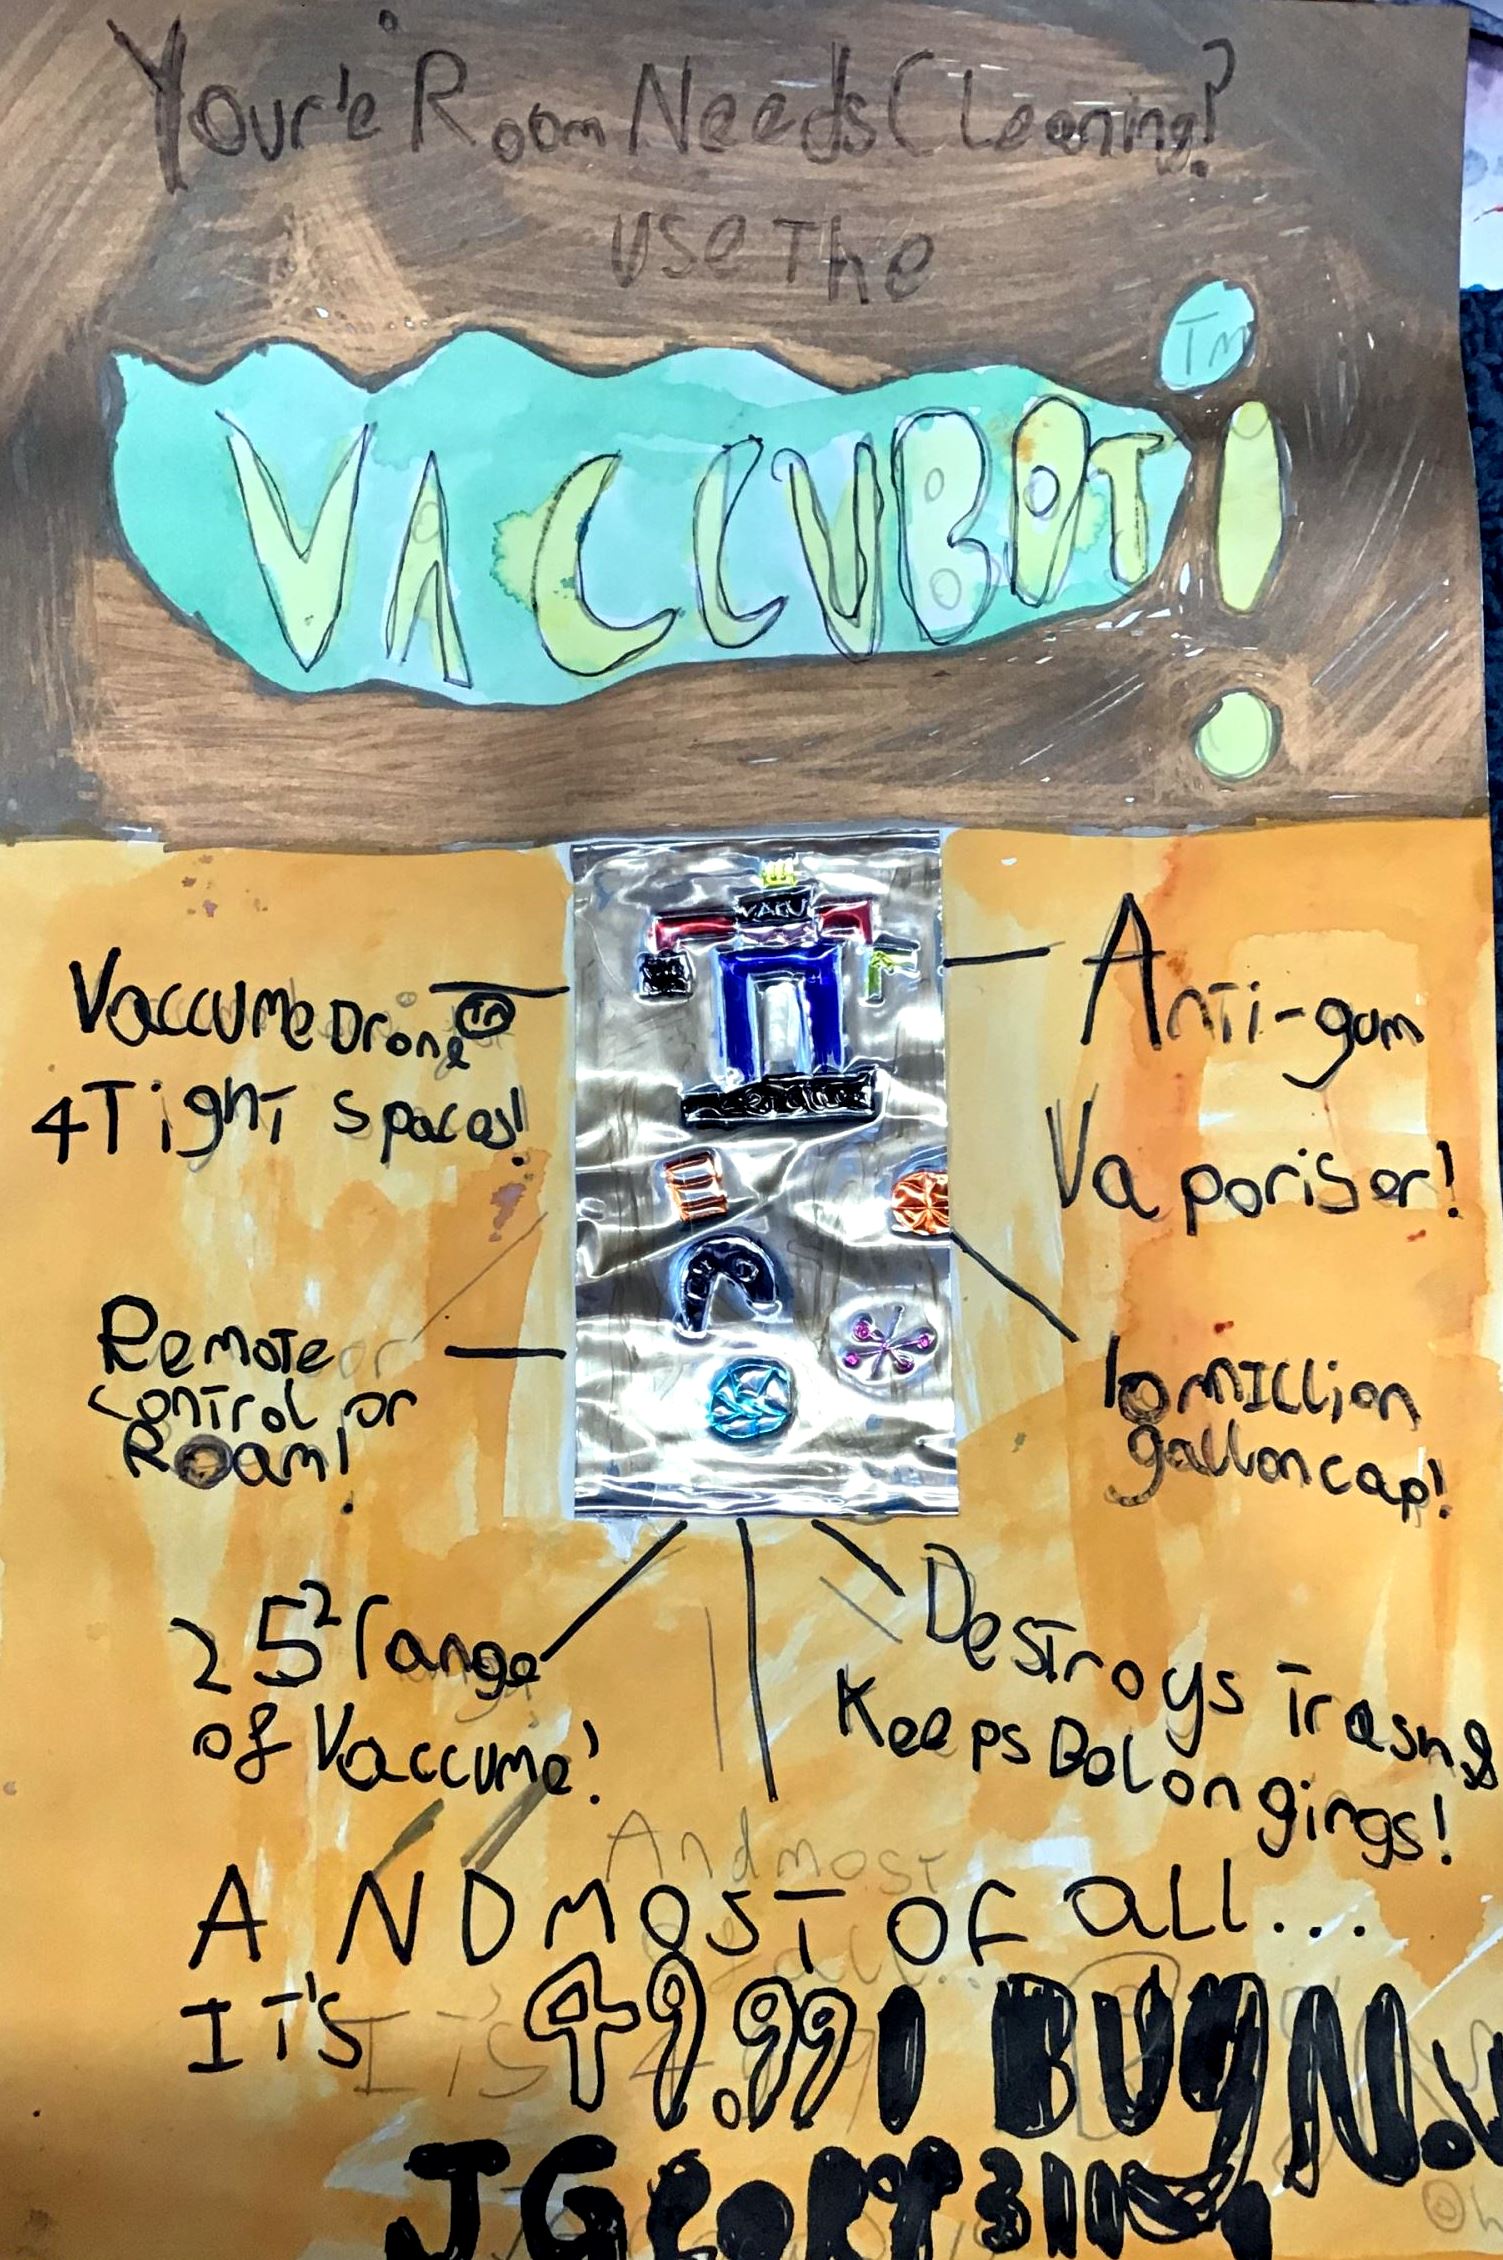 Your'e Room Needs Cleaning?
Use The
TM
VACCUBOT!
VACU
Vaccume Drone TM
4 Tight Spaces!
Anti-gum
Vaporiser!
Remote
control or
Roam!
10 million
gallon cap!
25² range
of Vaccume!
Destroys Trash &
Keeps Belongings!
And most
AND most OF all...
IT'S 49.99! BUY
JG